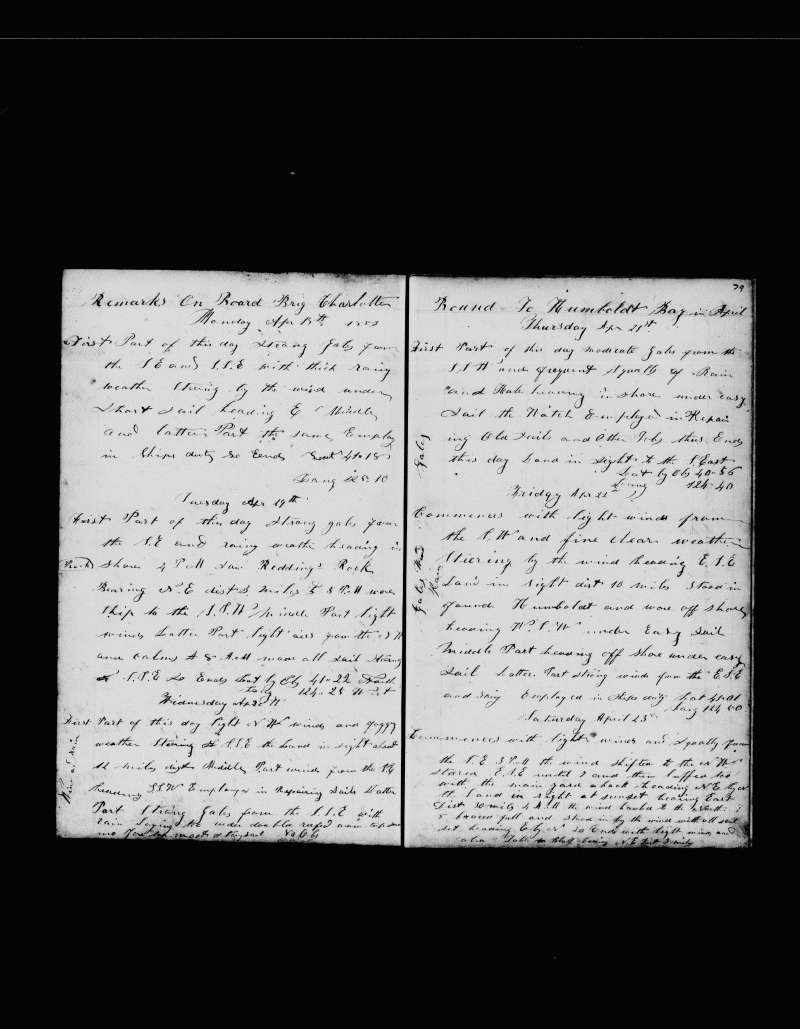 Remarks On Board Brig Charlotte
Monday Apr 18th
First Part of this day Strong Gales from
the S E and S.S.E with thick rainy
weather Stering by the wind under
Short Sail heading E Middle
and latter Part the same Employ
in Ships duty So Ends Lat 41-18
Long 125-10
Tuesday Apr 19th
First Part of this day Strong gales from
the S.E and rainy weather heaving in
Shore 4 P.M Saw Redding's Rock
Bearing N.E dist 3 miles 5 P.M wore
Ship to the S.S.W Middle Part light
winds Latter Part light airs from the
and calms 8 A.M made all sail Stering
S.S.E So Ends Lat by Obs 41-22 North
Long 124-25 West
Wednesday Apr
First Part of this day light N W winds and foggy
weather Stering S.S.E the land in sight about
12 miles dist Middle Part winds from the S.E
heading SSW Employed in Repairing Sails Latter
Part Strong Gales from the S.S.E with
rain Laying too under double reefed main top sail
79
Bound To Humboldt Bay in April
Thursday Apr 21st
First Part of this day moderate Gales from the
S.S.W and frequent Squalls of Rain
and Hale heaving in shore under easy
Sail the Watch Employed in Repair
ing Old Sails and Other Jobs thus Ends
this day Land in Sight to the S.East
Lat by Obs 40-56
Long 124-40
Gales
Friday Apr 22
Commences with light winds from
the S.W and fine clear weather
Steering by the wind heading E.S.E
Land in Sight dist 10 miles Stood in
found Humboldt and wore off shore
heading W.S.W under Easy Sail
Middle Part heading off Shore under easy
Sail Latter Part strong winds from the E.S.E
and rainy Employed in Ships duty Lat 41-01
Long 124-50
Saturday April 23
Commences with light winds and Squally from
the S.E 3 P.M the wind shifted to the N W
Stered E.S.E until 7 and then luffed too
with the main yard aback heading N E by N
the Land in sight at sunset bearing East
Dist 10 miles 4 A.M the wind hauled to the North
5 braced full and stood in by the wind with all sail
set heading E by N So Ends with light winds and